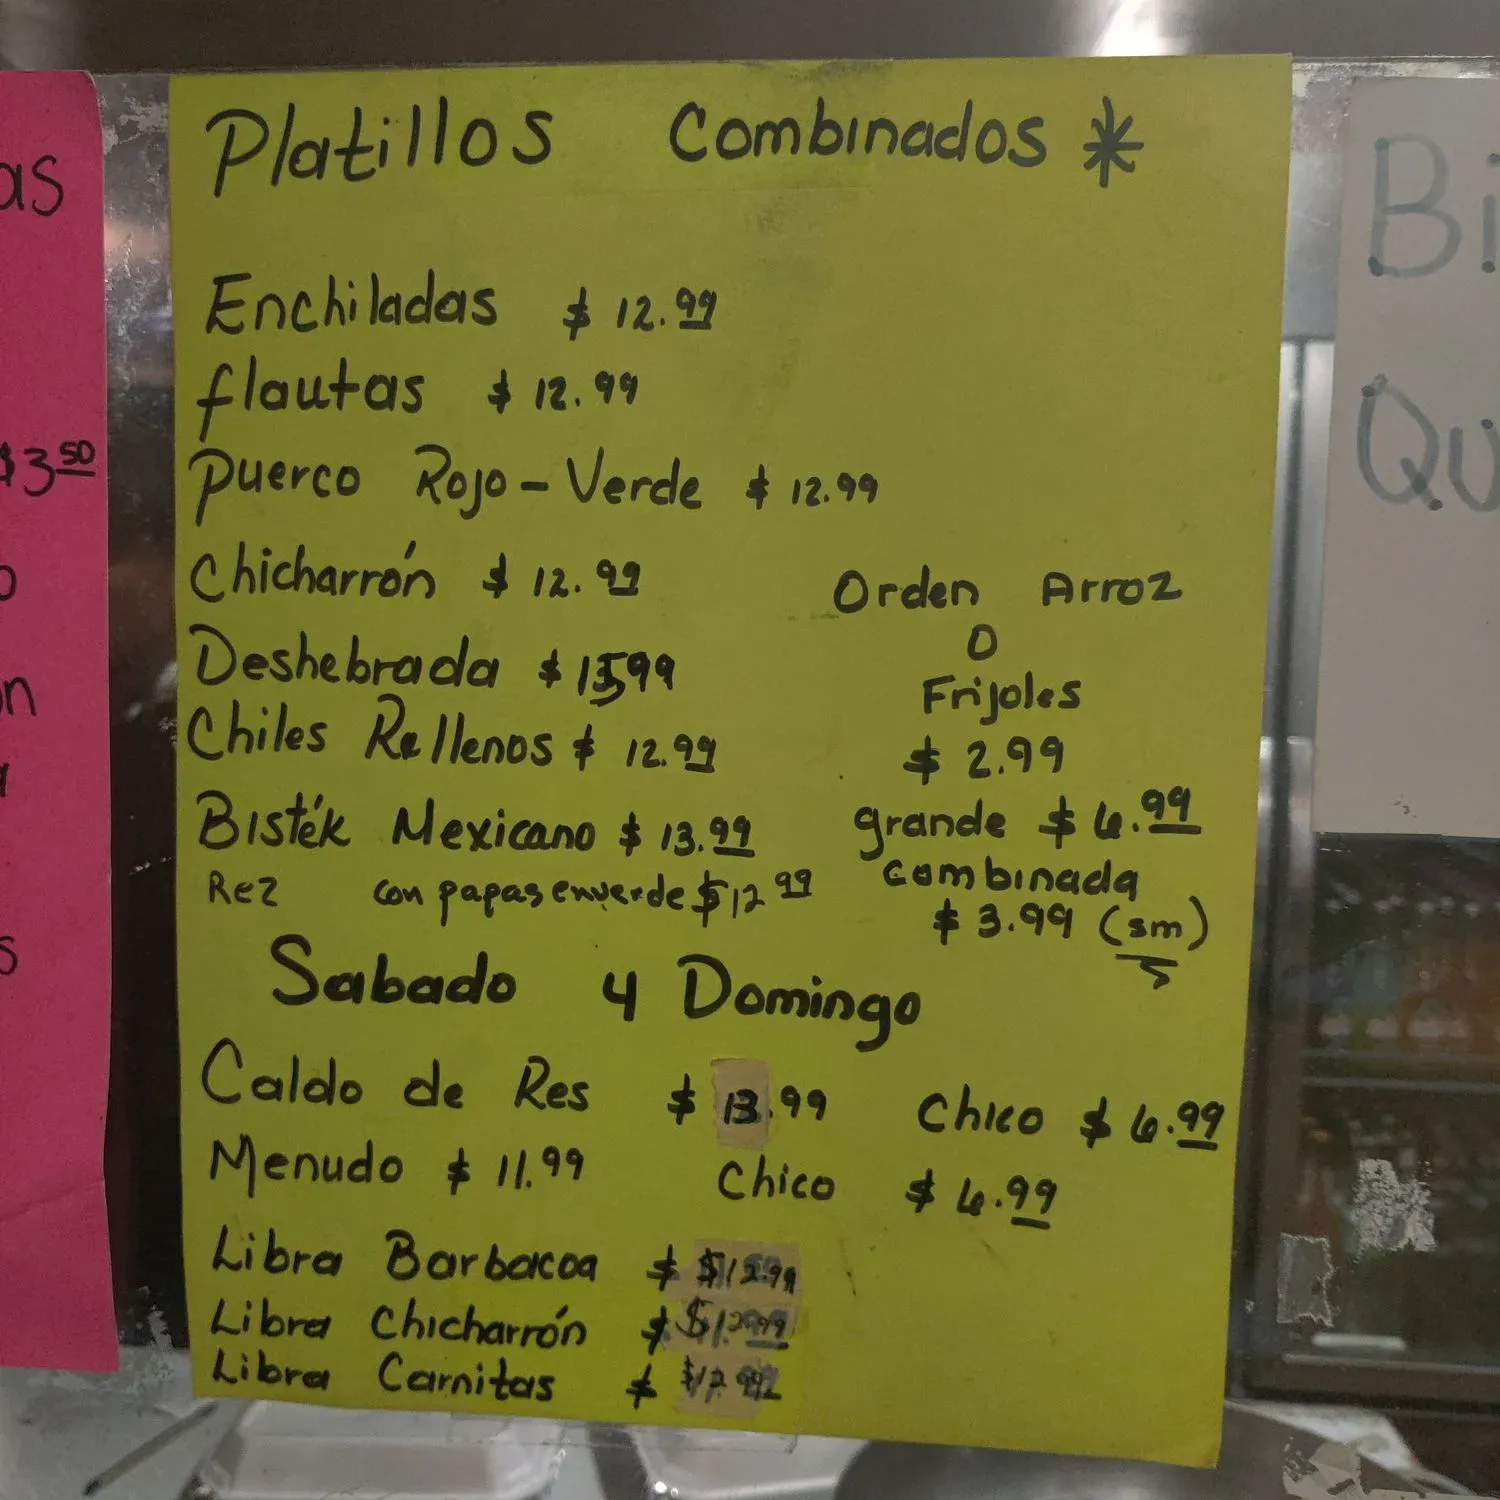 Platillos Combinados *
Enchiladas $ 12.99
flautas $ 12.99
Puerco Rojo-Verde $ 12.99
Chicharrón $ 12.99
Deshebrada $ 13.99
Chiles Rellenos $ 12.99
Bisték Mexicano $ 13.99
Rez con papas en verde $12 99
Orden Arroz
O
Frijoles
$ 2.99
grande $ 6.99
combinada
$ 3.99 (sm)
Sabado y Domingo
Caldo de Res $ 13.99 Chico $ 6.99
Menudo $ 11.99 Chico $ 6.99
Libra Barbacoa $ $12.99
Libra Chicharrón $ $12.99
Libra Carnitas $ $12.99
as
$3 50
o
n
s
Bi
Qu